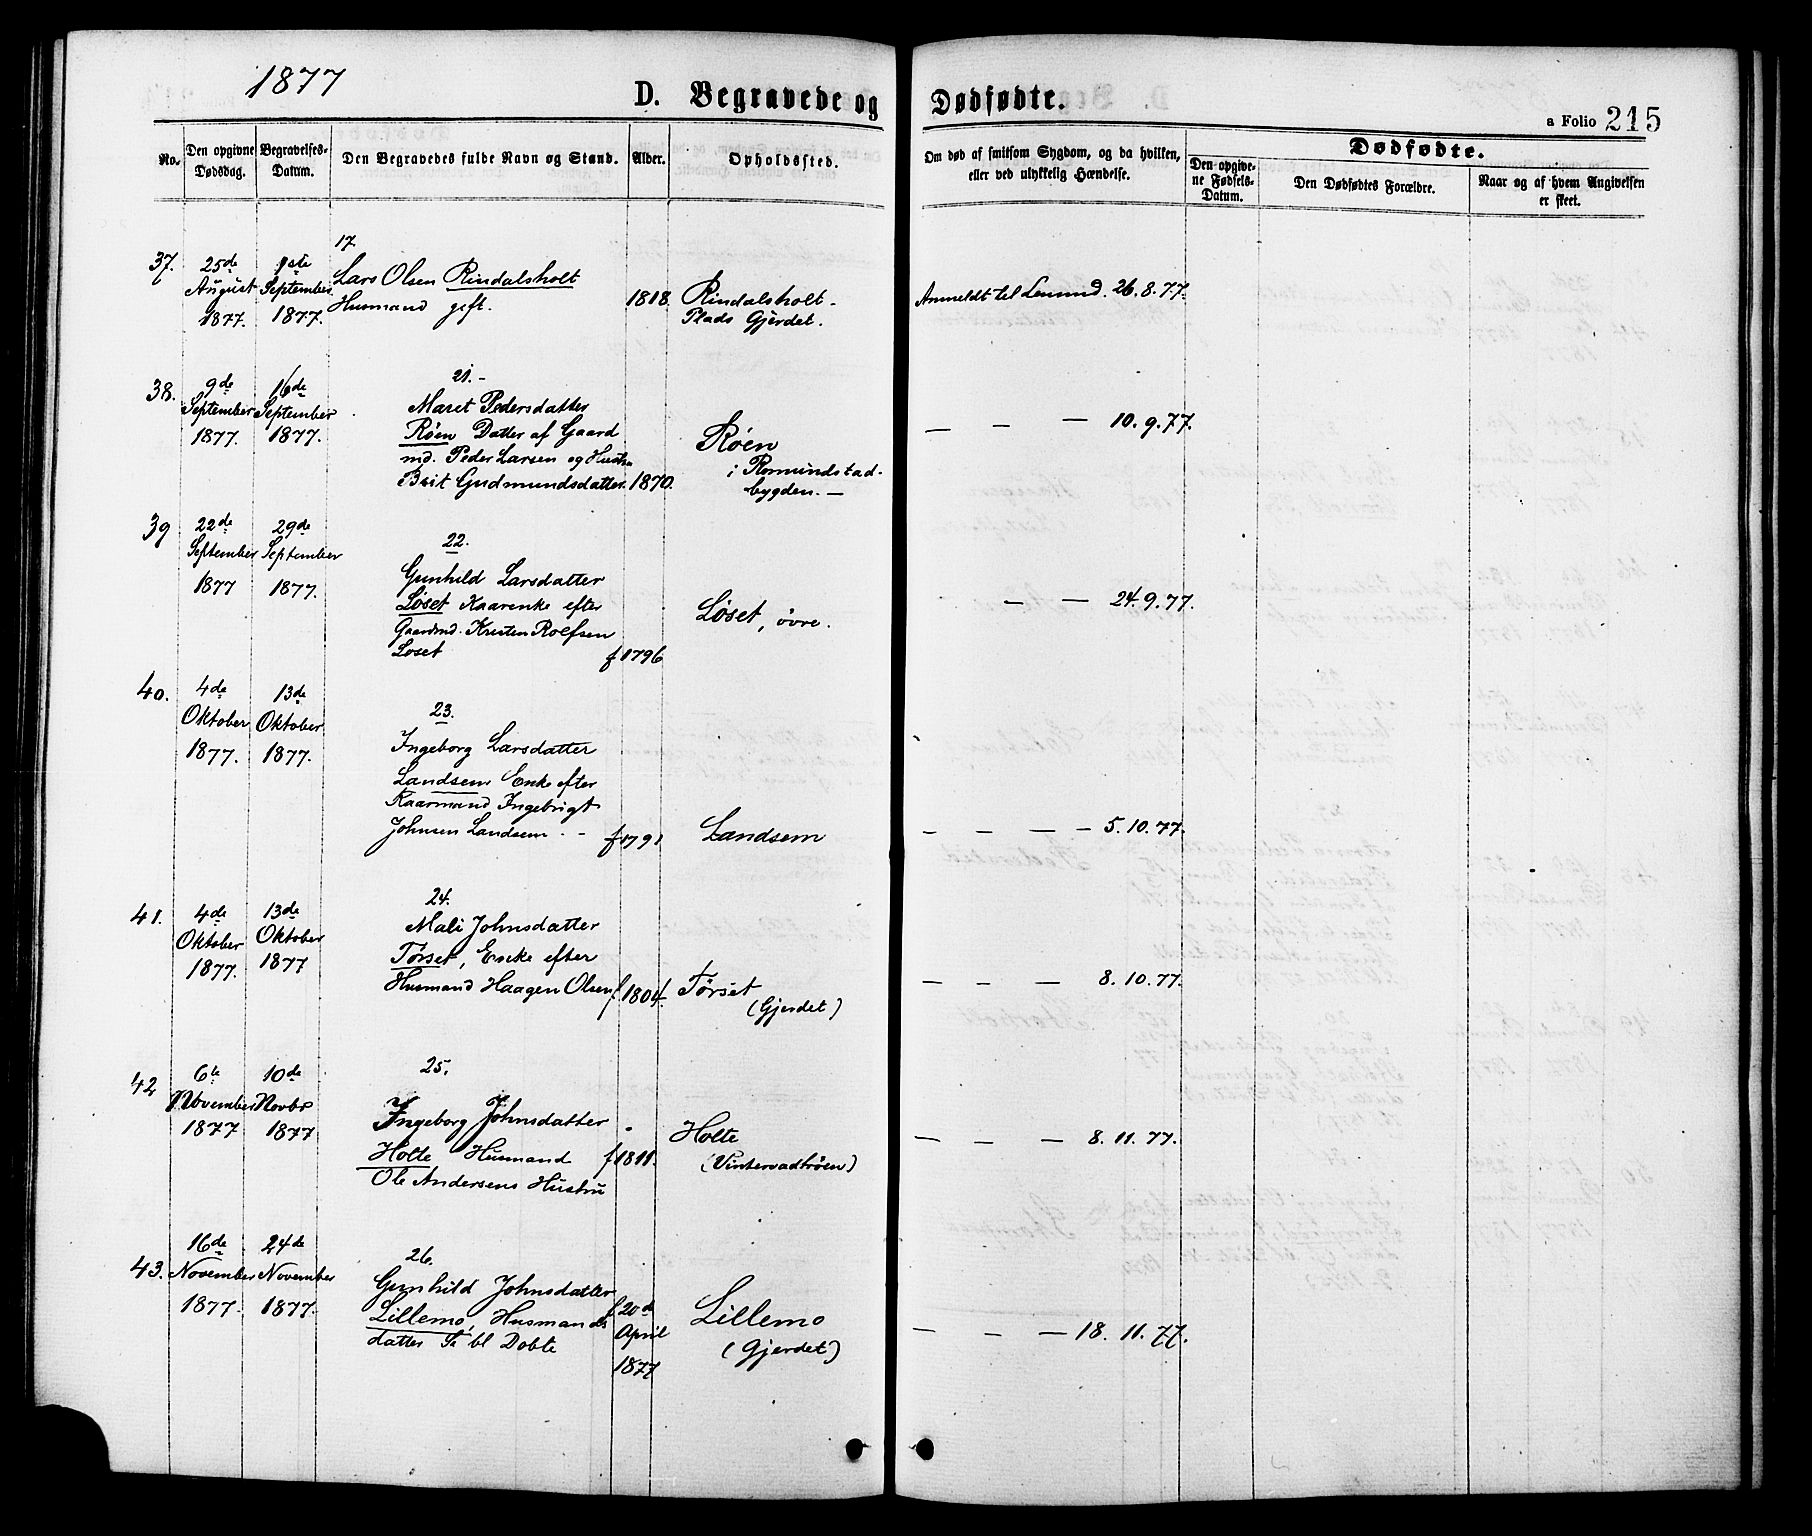 1877
D. Begravede og Dødfødte.
a Folio 215
No.
Den opgivne Dødsdag.
Begravelses-Datum.
Den Begravedes fulde Navn og Stand.
Alder.
Opholdssted.
Om død af smitsom Sygdom, og da hvilken,
eller ved ulykkelig Hændelse.
Dødfødte.
Den opgivne Fødsels-Datum.
Den Dødfødtes Forældre.
Naar og af hvem Angivelsen
er skeet.
17.
37.
25de August 1877.
1ste September 1877.
Lars Olsen Rindalsholt
Husmand gift.
1818.
Rindalsholt-
Plads Gjerdet.
Anmeldt til Lensmd. 26.8.77.
21.-
38.
9de September 1877.
16de September 1877.
Maret Pedersdatter
Røen Datter af Gaard
md. Peder Larsen og Hustru
Brit Gudmundsdatter.
1870.
Røen
i Romundstad-
bygden. —
— — — 10.9.77.
22.
39
22de September 1877
29de September 1877.
Gunhild Larsdatter
Løset Kaarenke efter
Gaardmd. Kristen Rolfsen
Løset
f 1796
Løset, øvre.
— — 24.9.77.
23.
40.
4de Oktober 1877.
13de Oktober 1877.
Ingeborg Larsdatter
Landsem Enke efter
Kaarmand Ingebrigt
Johnsen Landsem. -
f 1791
Landsem
— — — — 5.10.77.
24.
41.
4de Oktober 1877.
13de Oktober 1877
Mali Johnsdatter
Tørset, Encke efter
Husmand Haagen Olsen
f. 1804.
Tørset
(Gjerdet)
— — — 8.10.77.
25.
42
6te November 1877
10de Novbr 1877
Ingeborg Johnsdatter
Holte Husmand
Ole Andersens Hustru
f 1811.
Holte
(Vintervadtrøen)
— — — 8.11.77.
26.
43.
16de November 1877.
24de November 1877.
Gunhild Johnsdatter
Lillemo, Husmands
datter bl Døbte
f 20de April 1877
Lillemo
(Gjerdet)
— — — 18.11.77.